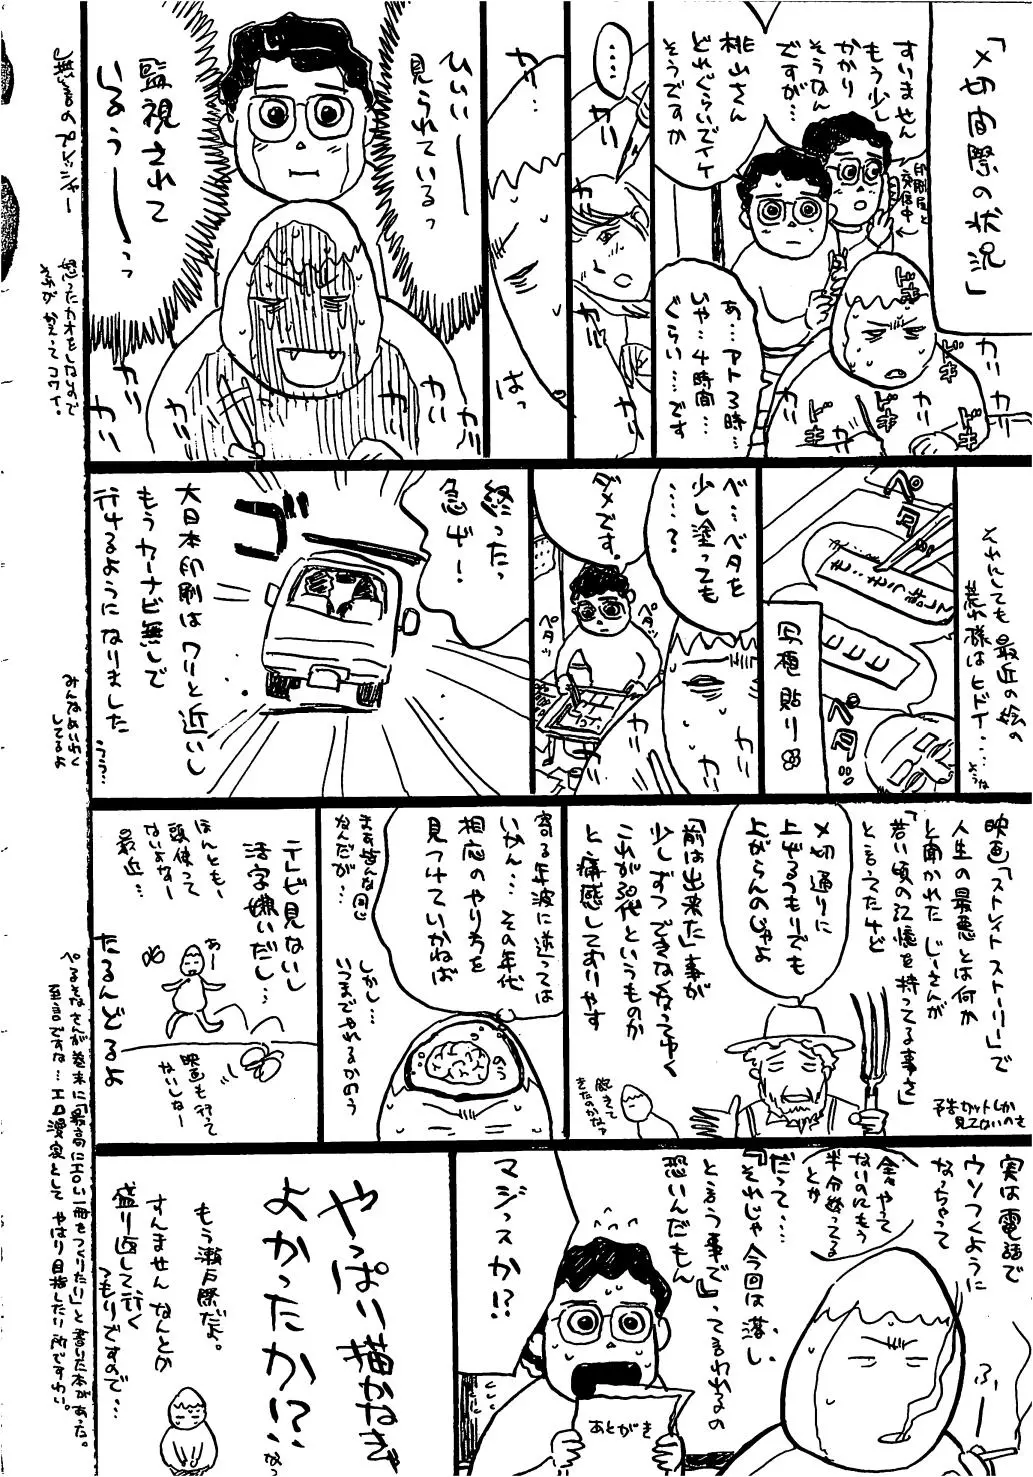 「〆切間際の状況」
すいません
もう少し
かかり
そうなん
ですが…
印刷屋と
交信中
桃山さん
どれぐらいでイケ
そうですか
あ…アト3時…
いや…4時間…
ぐらい……です
ドキ
ドキ
ドキ
ドキ
カリ
カリ
カリ
‥‥
カリ
カリ
カリ…
はっ
ひいぃー
見られているっ
監視されて
いるぅーーっっ
カリ
カリ
カリ
カリ
無言のプレッシャー
怒ったカオをしないので
それがかえってコワイ。
それにしても最近の絵の
荒れ様はヒドイ…
ペタ
ペタ
写植貼り
ベ…ベタを
少し塗っても
……?
ダメです。
ペタッ
ペタ
カリ
カリ
終ったっ
急げー!
ゴー
大日本印刷はワリと近いし
もうカーナビ無しで
行けるようになりました
うぅ…
みんなめいわく
してるよ
映画「ストレイトストーリー」で
人生の最悪とは何か
と聞かれたじーさんが
「若い頃の記憶を持ってる事さ」
と言ってたけど
予告カットしか
見てないのを
〆切通りに
上げるつもりでも
上がらんのじゃよ
「前は出来た」事が
少しずつできなくなってゆく
これが30代というものか
と痛感しておりやす
寄る年波に逆っては
いかん…その年代
相応のやり方を
見つけていかねば
まぁ皆んな同じ
なんだが…
しかし…
いつまでやれるかのう
テレビ見ないし
活字嫌いだし…
ほんともー
頭使って
ないよなー
最近…
あー
映画も行って
ないしなー
たるんどるよ
ぺるそなさんが巻末に「最高にエロい一冊をつくりたい」と書いた本があった。
至言ですな…エロ漫家としてやはり目指したい所ですわい。
実は電話で
ウソつくように
なっちゃって
全々やって
ないのにもう
半分終ってる
とか
だって…
『それじゃ今回は落し
という事で』って言われるの
恐いんだもん
ふー
マジっスか!?
あとがき
やっぱり描かなきゃ
よかったか!?
もう瀬戸際だよ。
すんませんなんとか
盛り返して行く
つもりですので…